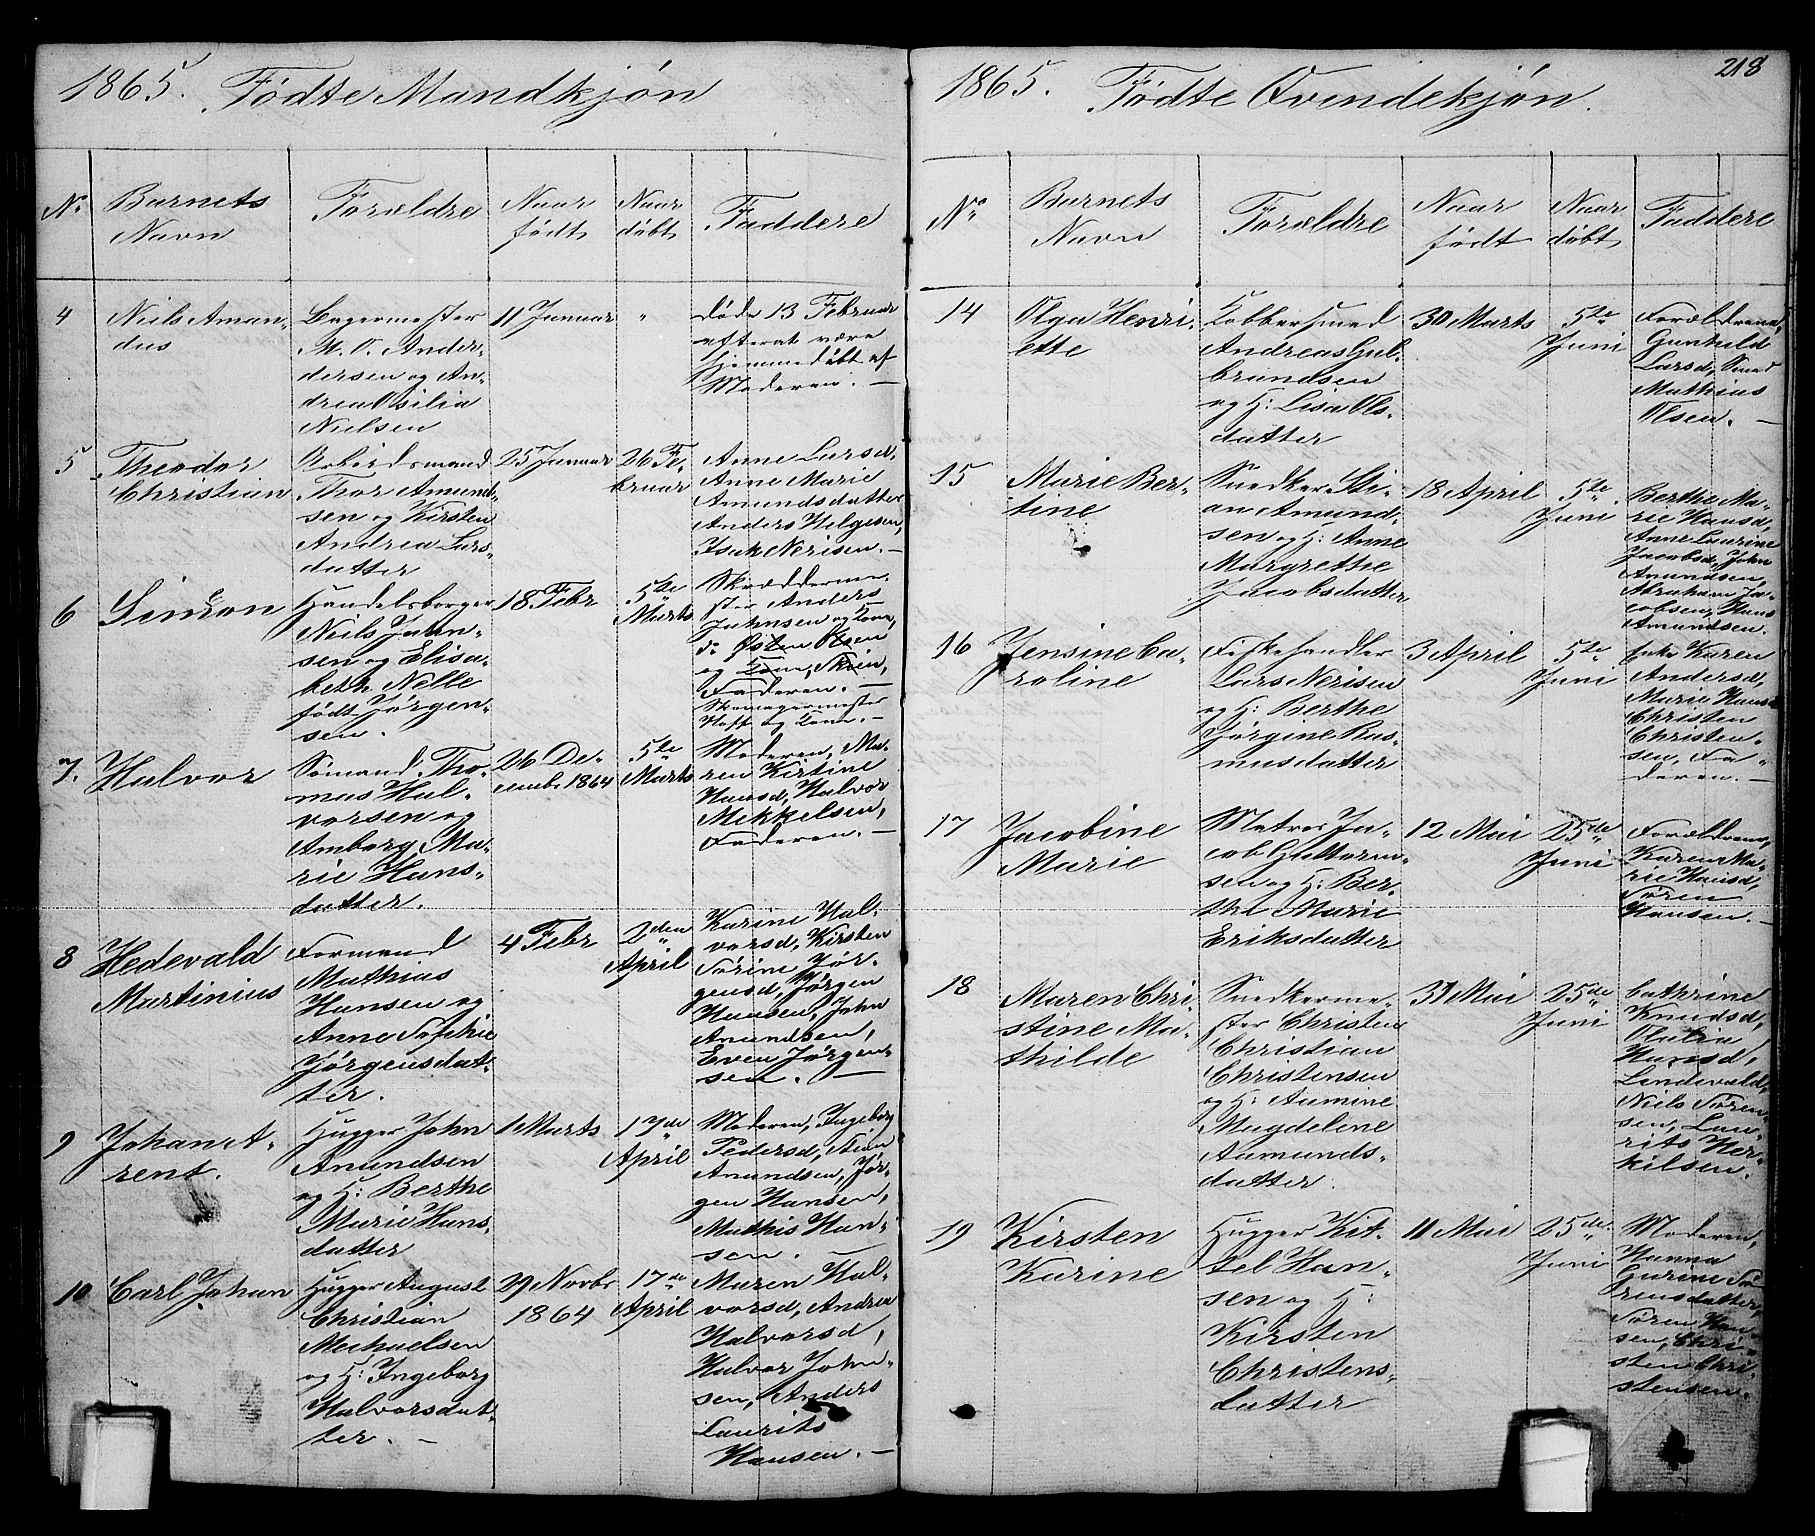 1865. Fødte Mandkjøn
No
Barnets
Navn
Forældre
Naar
født
Naar
døbt
Faddere
4
Niels Aman-
dus
Bagermester
M. O. Ander-
dersen og An-
drea Osilia
Nielsen
11 Januar
"
Døde 13 Februar
efterat være
hjemmedøbt af
Moderen. –
5
Theodor
Christian
Arbeidsmand
Thor Amund-
sen og Kirsten
Andrea Lars-
datter
25 Januar
26 Fe-
bruar
Anne Larsd,
Anne Marie
Amundsdatter
Anders Helgesen,
Isak Nerisen. –
6
Simon
Handelsborger
Niels John-
sen og Elisa-
beth Nelle
født Jørgen-
sen.
18 Febr
5te
Marts
Skræddermes-
ter Anders
Johnsen og Kone,
do Østen Olsen
og Kone, Skien,
Faderen. –
Skomagermester
Hoff og Kone. –
7.
Halvor
Sømand Tho-
mas Hal-
vorsen og
Amborg Ma-
rie Hans-
datter.
26 De-
cembr 1864
5te
Marts
Moderen, Ma-
ren Kirstine
Hansd, Halvor
Mikkelsen,
Faderen. –
8
Hedevald
Martinius
Formand
Mathias
Hansen og
Anne Sophie
Jørgensdat-
ter.
4 Febr
2den
April
Karine Hal-
vorsd, Kirsten
Sørine Jør-
gensd, Jørgen
Hansen, John
Anundsen,
Even Jørgen-
sen. –
9
Johan A-
rent.
Hugger John
Anundsen
og H: Berthe
Marie Hans-
datter
1 Marts
17de
April
Moderen, Ingeborg
Pedersd, Stian
Amundsen, Jør-
gen Hansen,
Mathis Han-
sen. –
10
Carl Johan
Hugger August
Christian
Mechaelsen
og H: Ingeborg
Halvorsdat-
ter. –
29 Novbr
1864
17de
April
Maren Hal-
vorsd, Andrea
Halvorsd,
Halvor John-
sen, Anders
Laurits
Hansen. –
218
1865. Fødte Qvindekjøn.
No
Barnets
Navn
Forældre
Naar
født
Naar
døbt
Faddere
14
Olga Henri-
ette
Kobbersmed
Andreas Gul-
brandsen
og H: Lisa Ols-
datter
30 Marts
5te
Juni
Forældrene,
Gunhild
Larsd, Smed
Mathias
Olsen. –
15
Marie Ber-
tine
Snedker Sti-
an Amund-
sen og H: Anne
Margrethe
Jacobsdatter
18 April
5te
Juni
Berthe Ma-
rie Hansd,
Anne Laurine
Jacobsd, John
Anundsen,
Abraham Ja-
cobsen, Hans
Amundsen.
16
Jensine Ca-
roline
Fiskehandler
Lars Nerisen
og H: Berthe
Jørgine Ras-
musdatter
3 April
5te
Juni
Enke Karen
Andersd,
Marie Hansd
Christen
Christen-
sen, Fa-
deren. –
17
Jacobine
Marie
Matros Ja-
cob Guttorm-
sen og H: Ber-
the Marie
Eriksdatter
12 Mai
25de
Juni
Forældrene,
Karen Ma-
rie Hansd,
Søren
Hansen. –
18
Maren Chri-
stine Ma-
thilde
Snedkerme-
ster Christen
Christian
Christensen
og H: Aumine
Magdeline
Aamunds-
datter.
31 Mai
25de
Juni
Cathrine
Knudsd,
Olalia
Hansd,
Lindevald,
Niels Søren-
sen, Lau-
rits Ter-
kilsen.
19
Kirsten
Karine
Hugger Kit-
tel Han-
sen og H:
Kirsten
Christens-
datter
11 Mai
25de
Juni
Moderen,
Hanna
Gurine Sø-
rensdatter,
Søren Han-
sen, Chri-
sten Chri-
stensen.